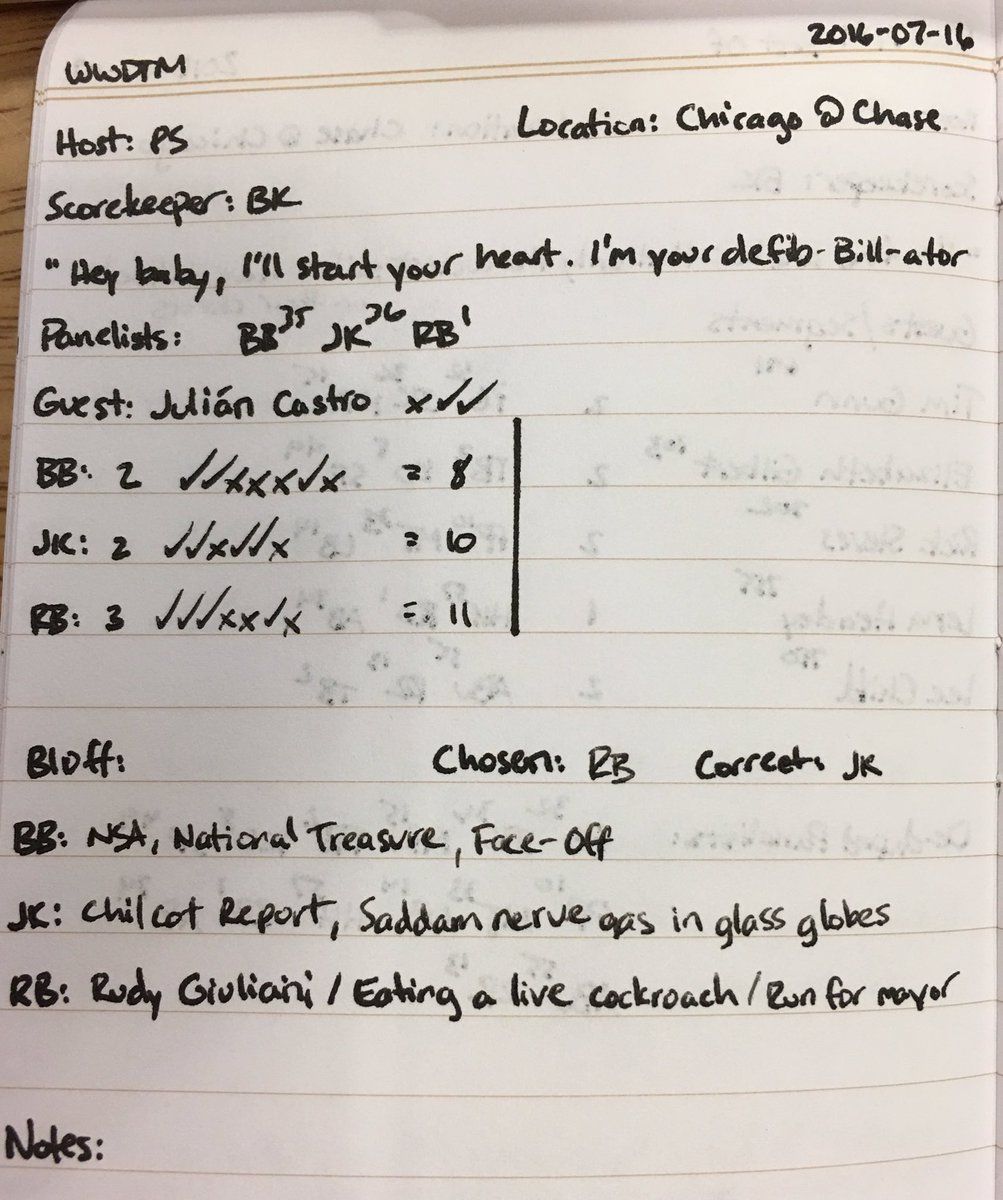 2016-07-16
WWDTM
Host: PS Location: Chicago @ Chase
Scorekeeper: BK
"Hey baby, I'll start your heart. I'm your defib-Bill-ator
Panelists: BB³⁵ JK³⁶ RB¹
Guest: Julián Castro x✓✓
BB: 2 ✓✓xxx✓x = 8
JK: 2 ✓✓x✓✓x = 10
RB: 3 ✓✓✓xx✓x = 11
Bluff: Chosen: RB Correct: JK
BB: NSA, National Treasure, Face-Off
JK: Chilcot Report, Saddam nerve gas in glass globes
RB: Rudy Giuliani / Eating a live cockroach / Run for mayor
Notes: